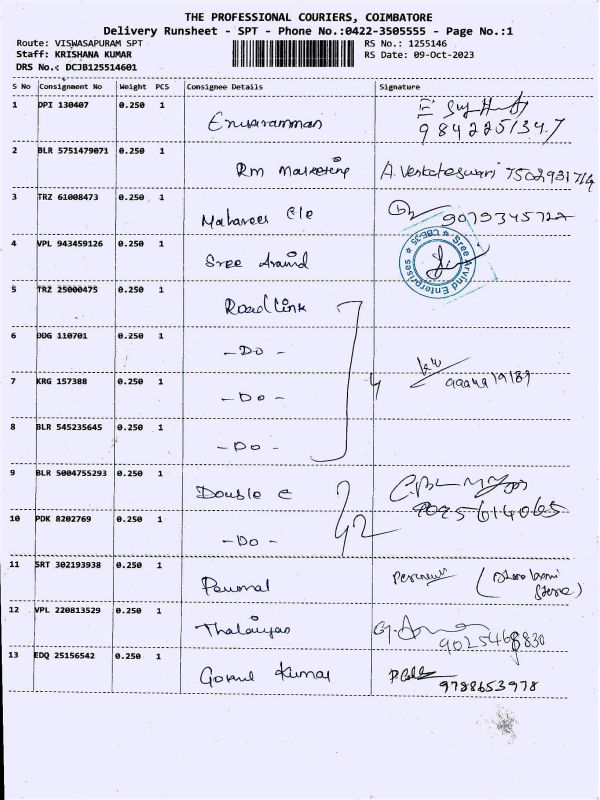 THE PROFESSIONAL COURIERS, COIMBATORE
Delivery Runsheet - SPT - Phone No.:0422-3505555 - Page No.:1
Route: VISWASAPURAM SPT RS No.: 1255146
Staff: KRISHANA KUMAR RS Date: 09-Oct-2023
DRS No.: DCJB125514601
S No Consignment No Weight PCS Consignee Details Signature
1 DPI 130407 0.250 1
9842251347
2 BLR 5751479071 0.250 1 Rm Marketing A. Venkateswari 7502931714
3 TRZ 61008473 0.250 1 Mahaveer 9079345727
4 VPL 943459126 0.250 1 Sree Aravind Sree Arvind Enterprises ★ CBE-35 ★
5 TRZ 25000475 0.250 1 Road Link
6 DDG 110701 0.250 1 - Do -
7 KRG 157388 0.250 1 - Do - 4
8 BLR 545235645 0.250 1 - Do -
9 BLR 5004755293 0.250 1 Double C
9025614065
10 PDK 8202769 0.250 1 - Do - 2
11 SRT 302193938 0.250 1 Perumal
12 VPL 220813529 0.250 1
13 EDQ 25156542 0.250 1 Gokul Kumar
9788653978